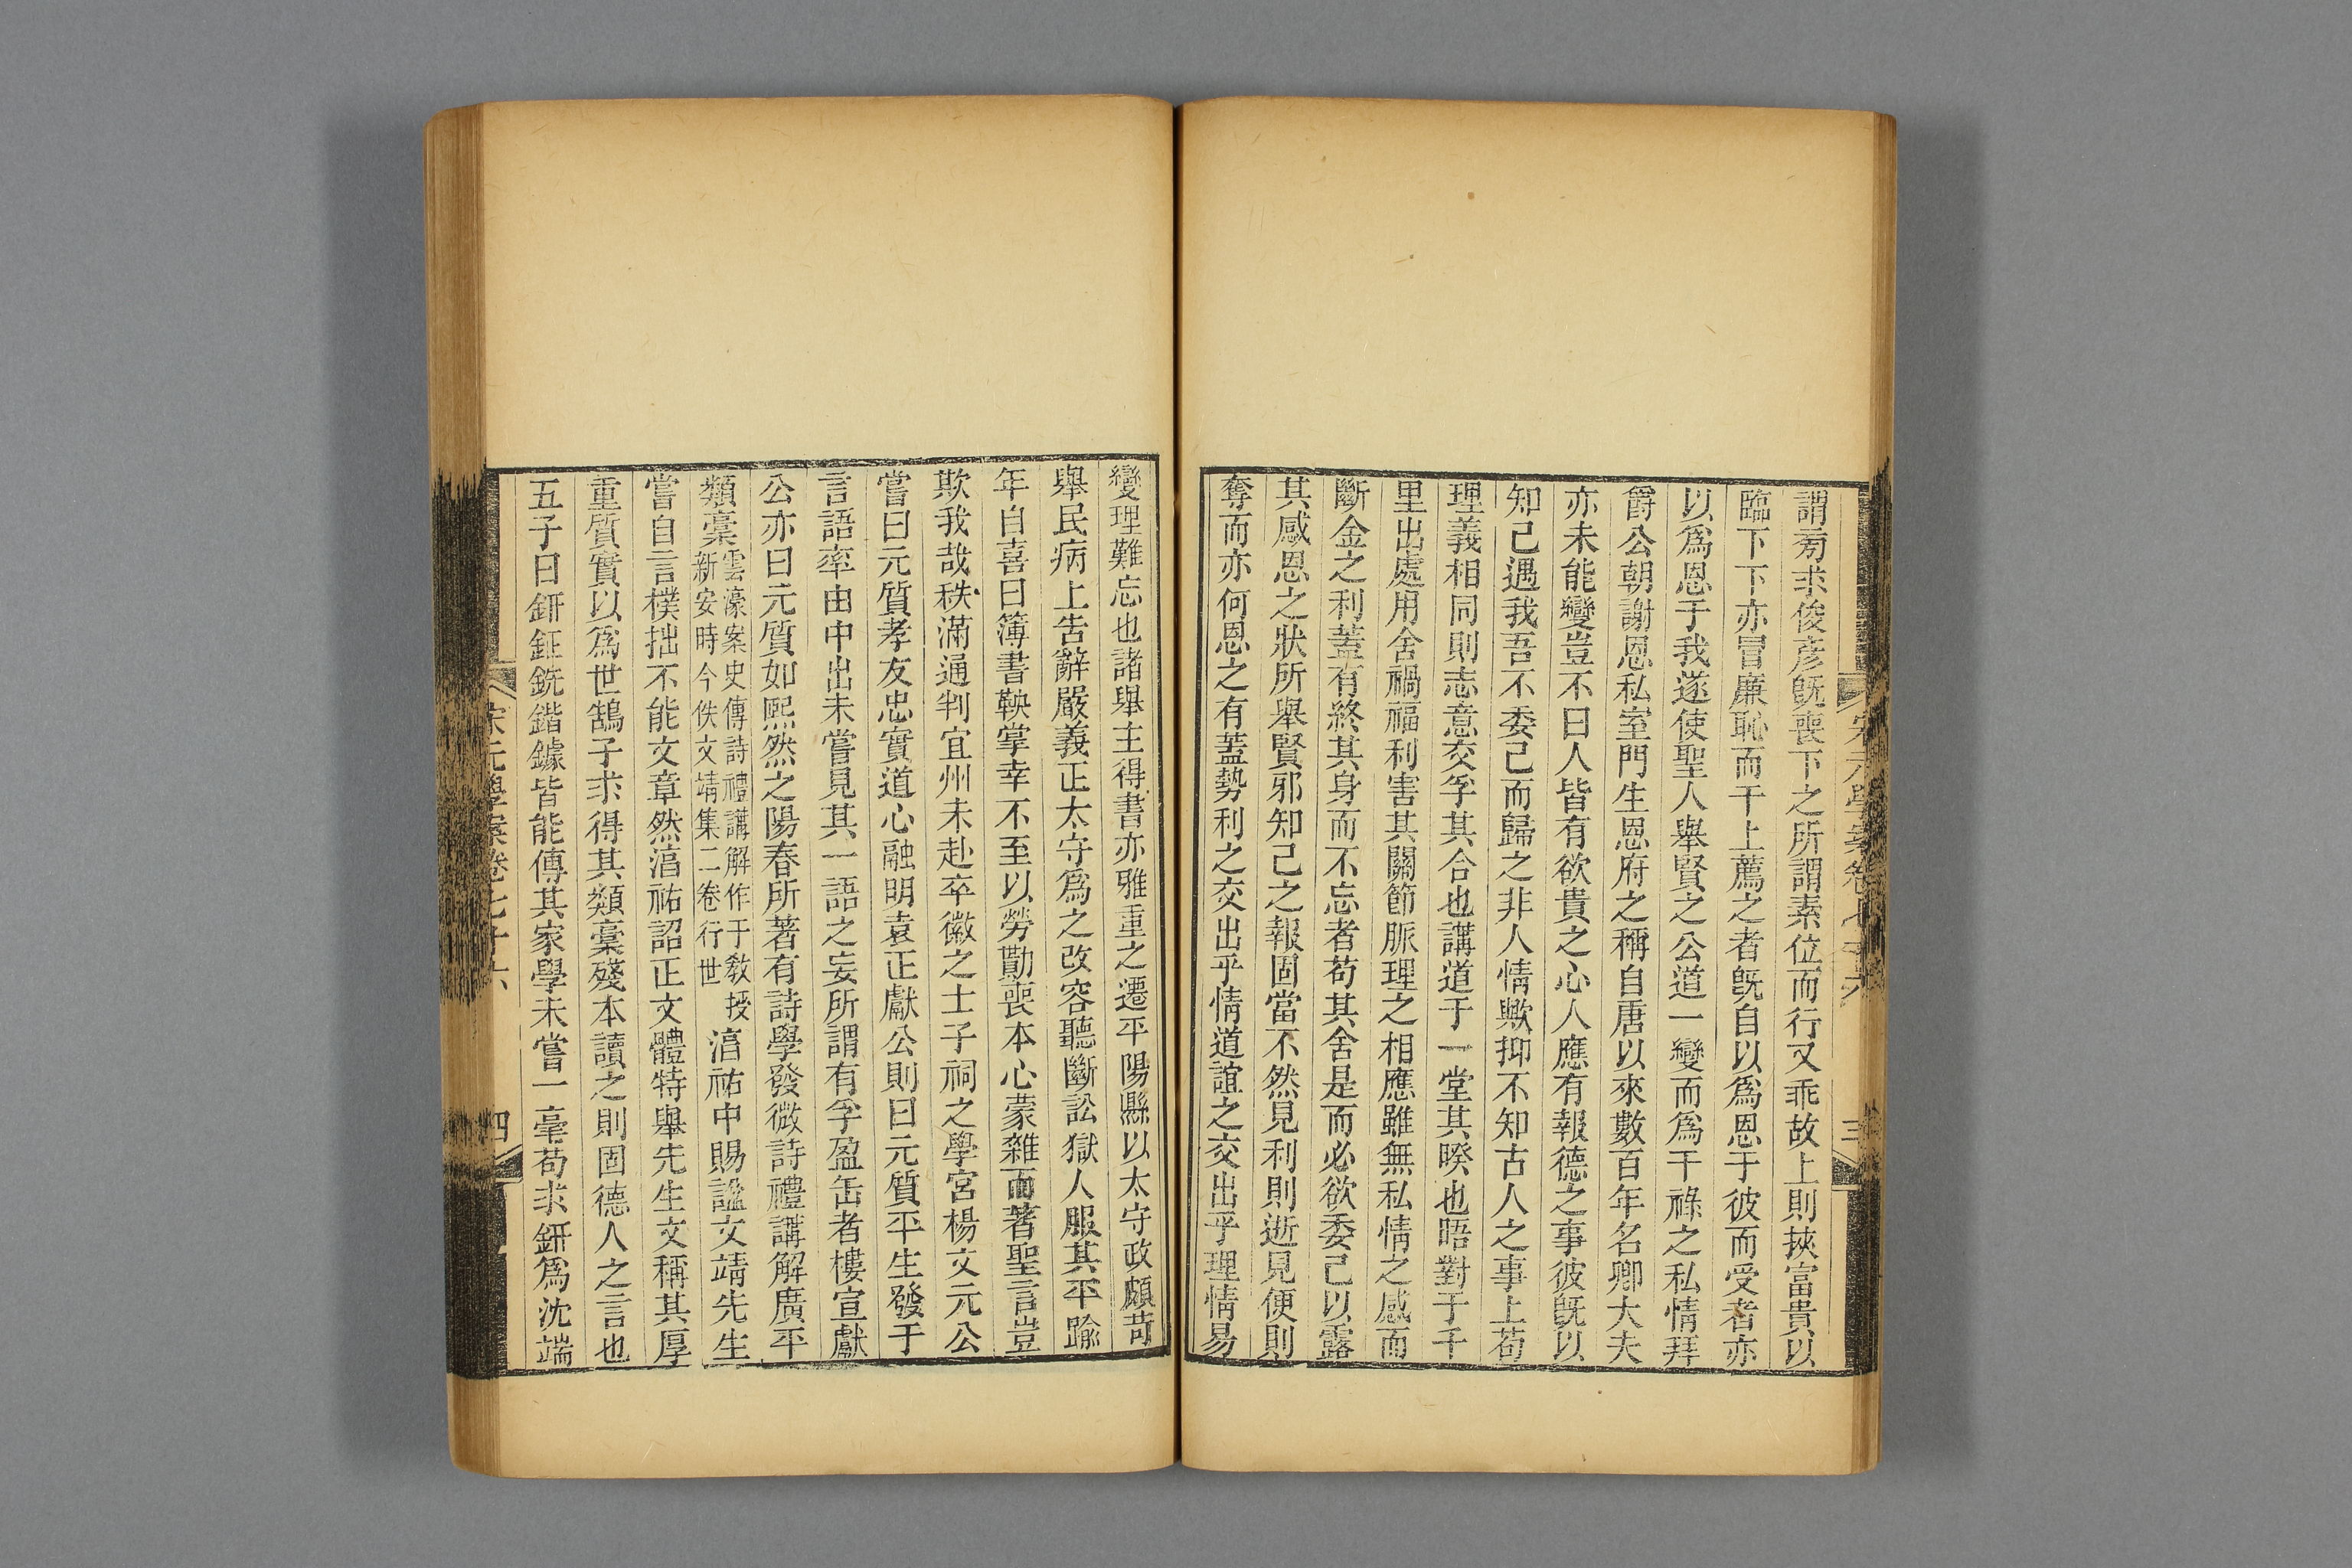 宋元學案卷七十六
三
謂旁求俊彥旣喪下之所謂素位而行又乖故上則挾富貴以
臨下下亦冒廉恥而干上薦之者旣自以爲恩于彼而受者亦
以爲恩于我遂使聖人舉賢之公道一變而爲干祿之私情拜
爵公朝謝恩私室門生恩府之稱自唐以來數百年名卿大夫
亦未能變豈不曰人皆有欲貴之心人應有報德之事彼旣以
知己遇我吾不委己而歸之非人情歟抑不知古人之事上苟
理義相同則志意交孚其合也講道于一堂其暌也晤對于千
里出處用舍禍福利害其關節脈理之相應雖無私情之感而
斷金之利蓋有終其身而不忘者苟其舍是而必欲委己以露
其感恩之狀所舉賢邪知己之報固當不然見利則逝見便則
奪而亦何恩之有蓋勢利之交出乎情道誼之交出乎理情易
變理難忘也諸舉主得書亦雅重之遷平陽縣以太守政頗苛
舉民病上吿辭嚴義正太守爲之改容聽斷訟獄人服其平踰
年自喜曰簿書鞅掌幸不至以勞勩喪本心蒙雜而著聖言豈
欺我哉秩滿通判宜州未赴卒徽之士子祠之學宮楊文元公
嘗曰元質孝友忠實道心融明袁正獻公則曰元質平生發于
言語率由中出未嘗見其一語之妄所謂有孚盈缶者樓宣獻
公亦曰元質如熙然之陽春所著有詩學發微詩禮講解廣平
類稾雲濠案史傳詩禮講解作于敎授新安時今佚文靖集二卷行世湻祐中賜諡文靖先生
嘗自言樸拙不能文章然湻祐詔正文體特舉先生文稱其厚
重質實以爲世鵠子求得其類稾殘本讀之則固德人之言也
五子曰鈃鉦銑鍇鐻皆能傳其家學未嘗一毫苟求鈃爲沈端
宋元學案卷七十六
四